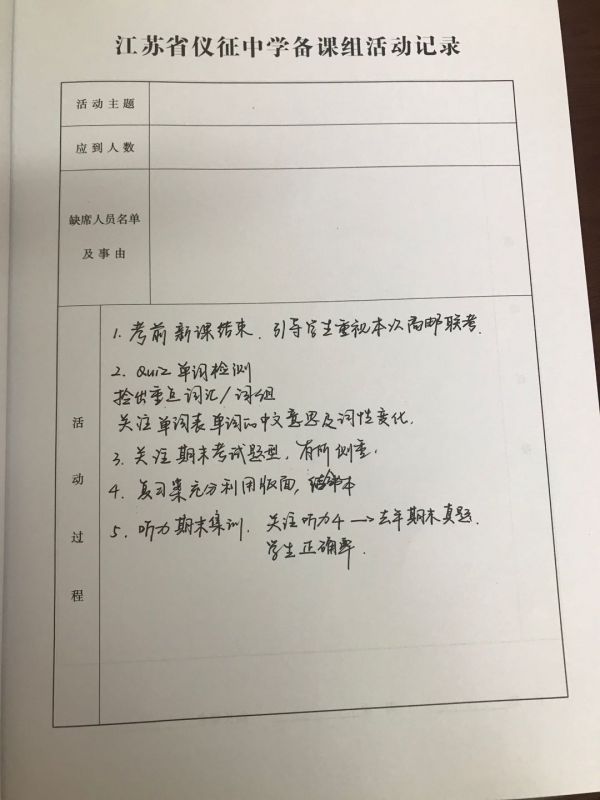 江苏省仪征中学备课组活动记录
活动主题
应到人数
缺席人员名单
及事由
活动过程
1. 考前新课结束. 引导学生重视本次高邮联考.
2. Quiz 单词检测
拎出重点词汇/词组
关注单词表单词的中文意思及词性变化.
3. 关注期末考试题型, 有所侧重.
4. 复习集充分利用版面, 本
5. 听力期末集训. 关注听力4 → 去年期末真题.
学生正确率.